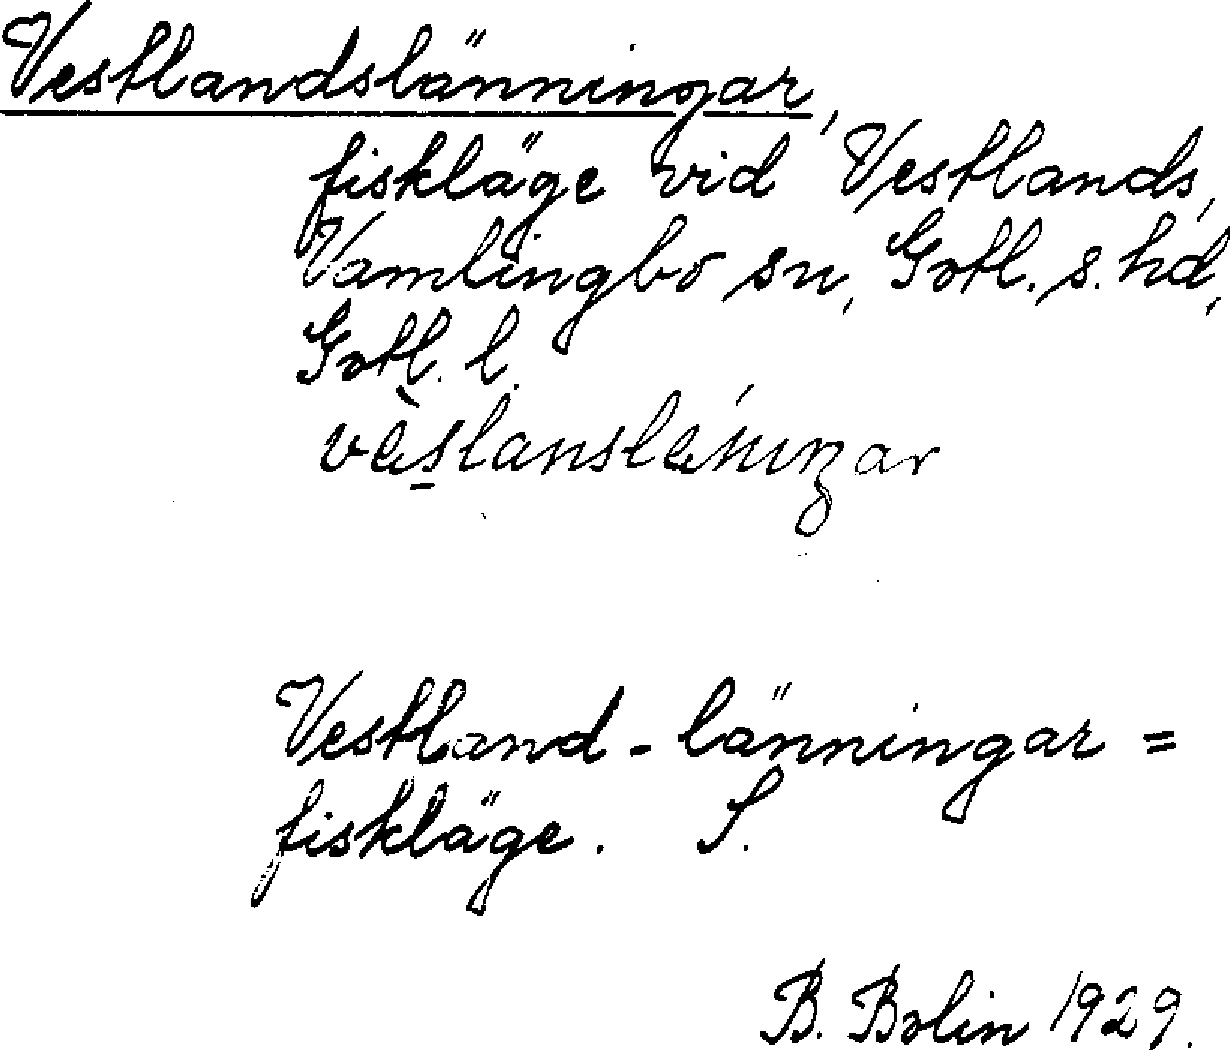 Vestlandslänningar,
fiskläge vid Vestlands,
Vamlingbo sn, Gotl. s. hd,
Gotl. l.
væ̀slanslǽnıŋar
Vestland - länningar =
fiskläge. S.
B. Bolin 1929.